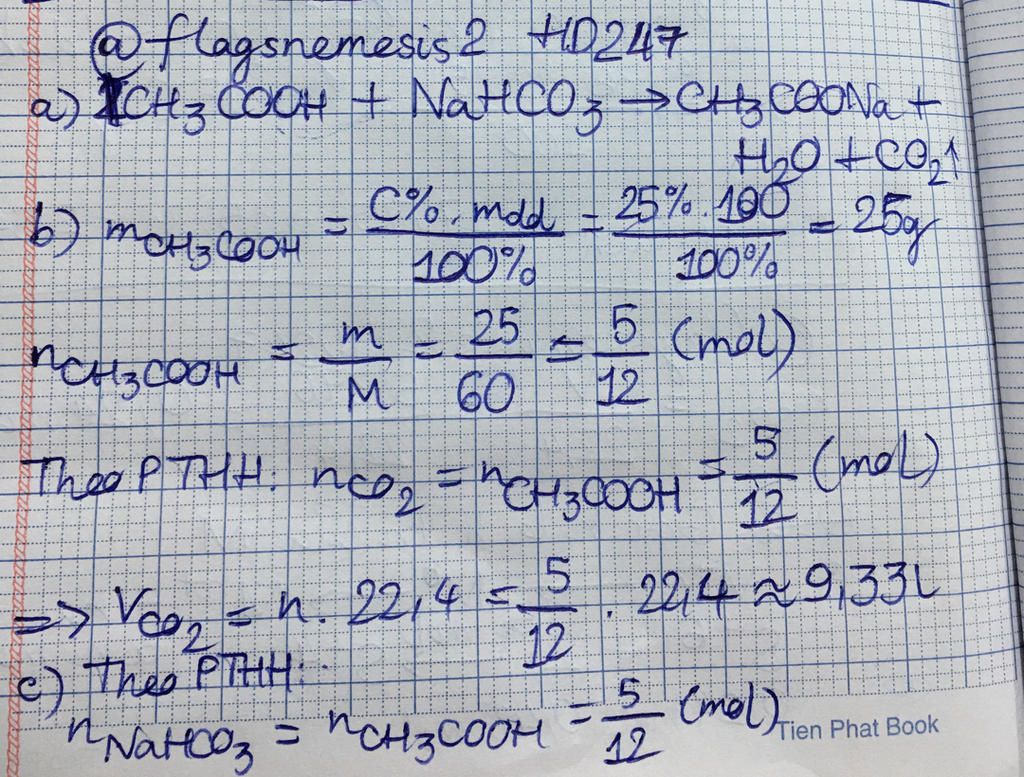 @flagsnemesis2 HD247
a) CH₃COOH + NaHCO₃ → CH₃COONa +
H₂O + CO₂↑
b) mCH₃COOH = C%.mdd / 100% = 25%.100 / 100% = 25g
nCH₃COOH = m/M = 25/60 = 5/12 (mol)
Theo PTHH: nCO₂ = nCH₃COOH = 5/12 (mol)
=> VCO₂ = n. 22,4 = 5/12 . 22,4 ≈ 9,33L
c) Theo PTHH:
nNaHCO₃ = nCH₃COOH = 5/12 (mol)
Tien Phat Book